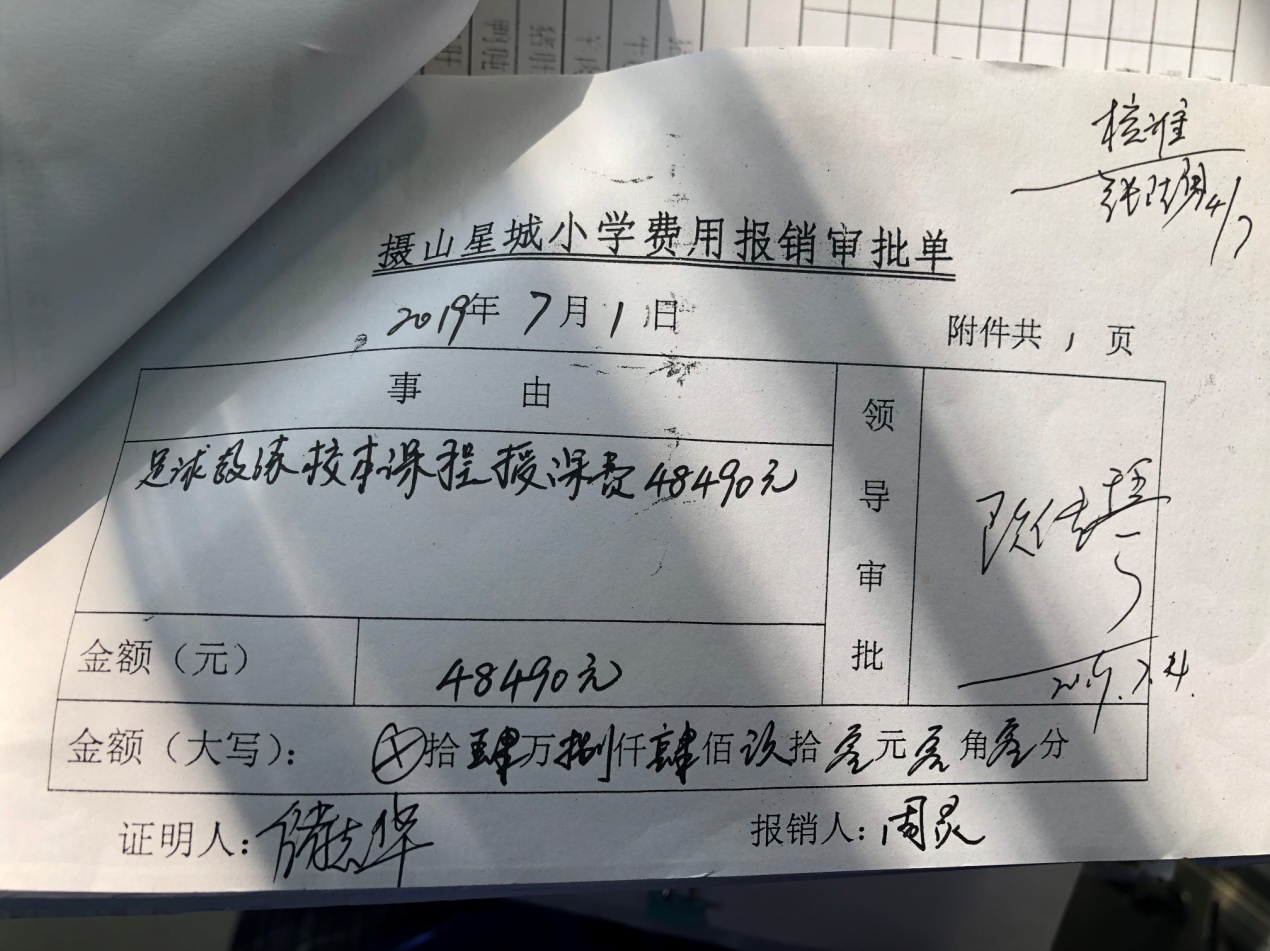 核准
4/7
摄山星城小学费用报销审批单
2019年 7月1日
附件共 1 页
事 由
领导审批
足球教练校本课程授课费48490元
2019.7.4.
金额（元）
48490元
金额（大写）： ⊗拾肆万捌仟肆佰玖拾零元零角零分
证明人：
报销人：周灵